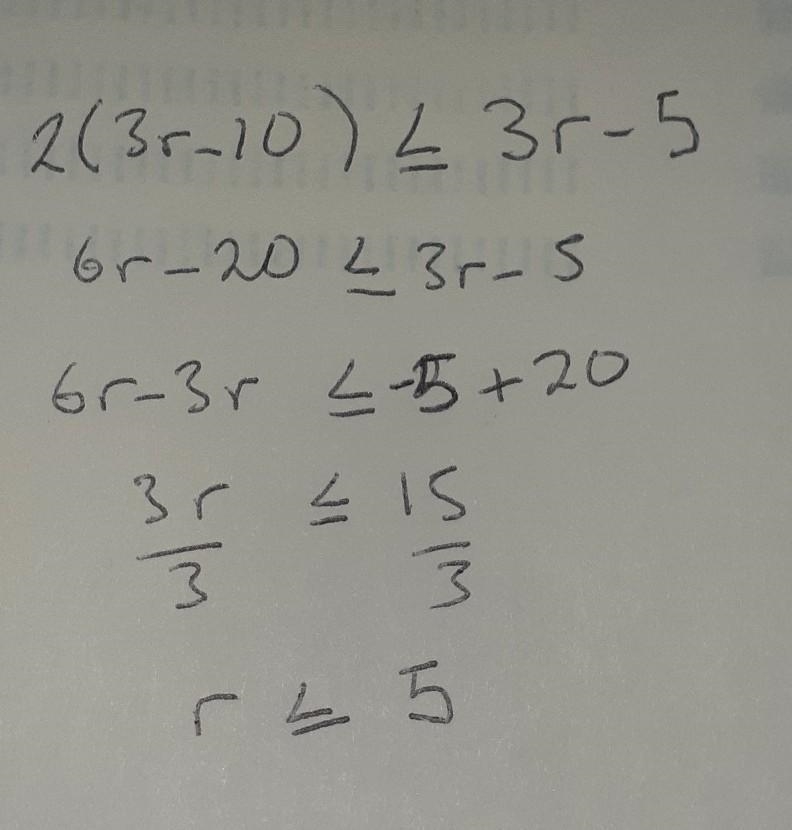 2(3r-10) ≤ 3r-5
6r-20 ≤ 3r-5
6r-3r ≤ -5+20
3r/3 ≤ 15/3
r ≤ 5